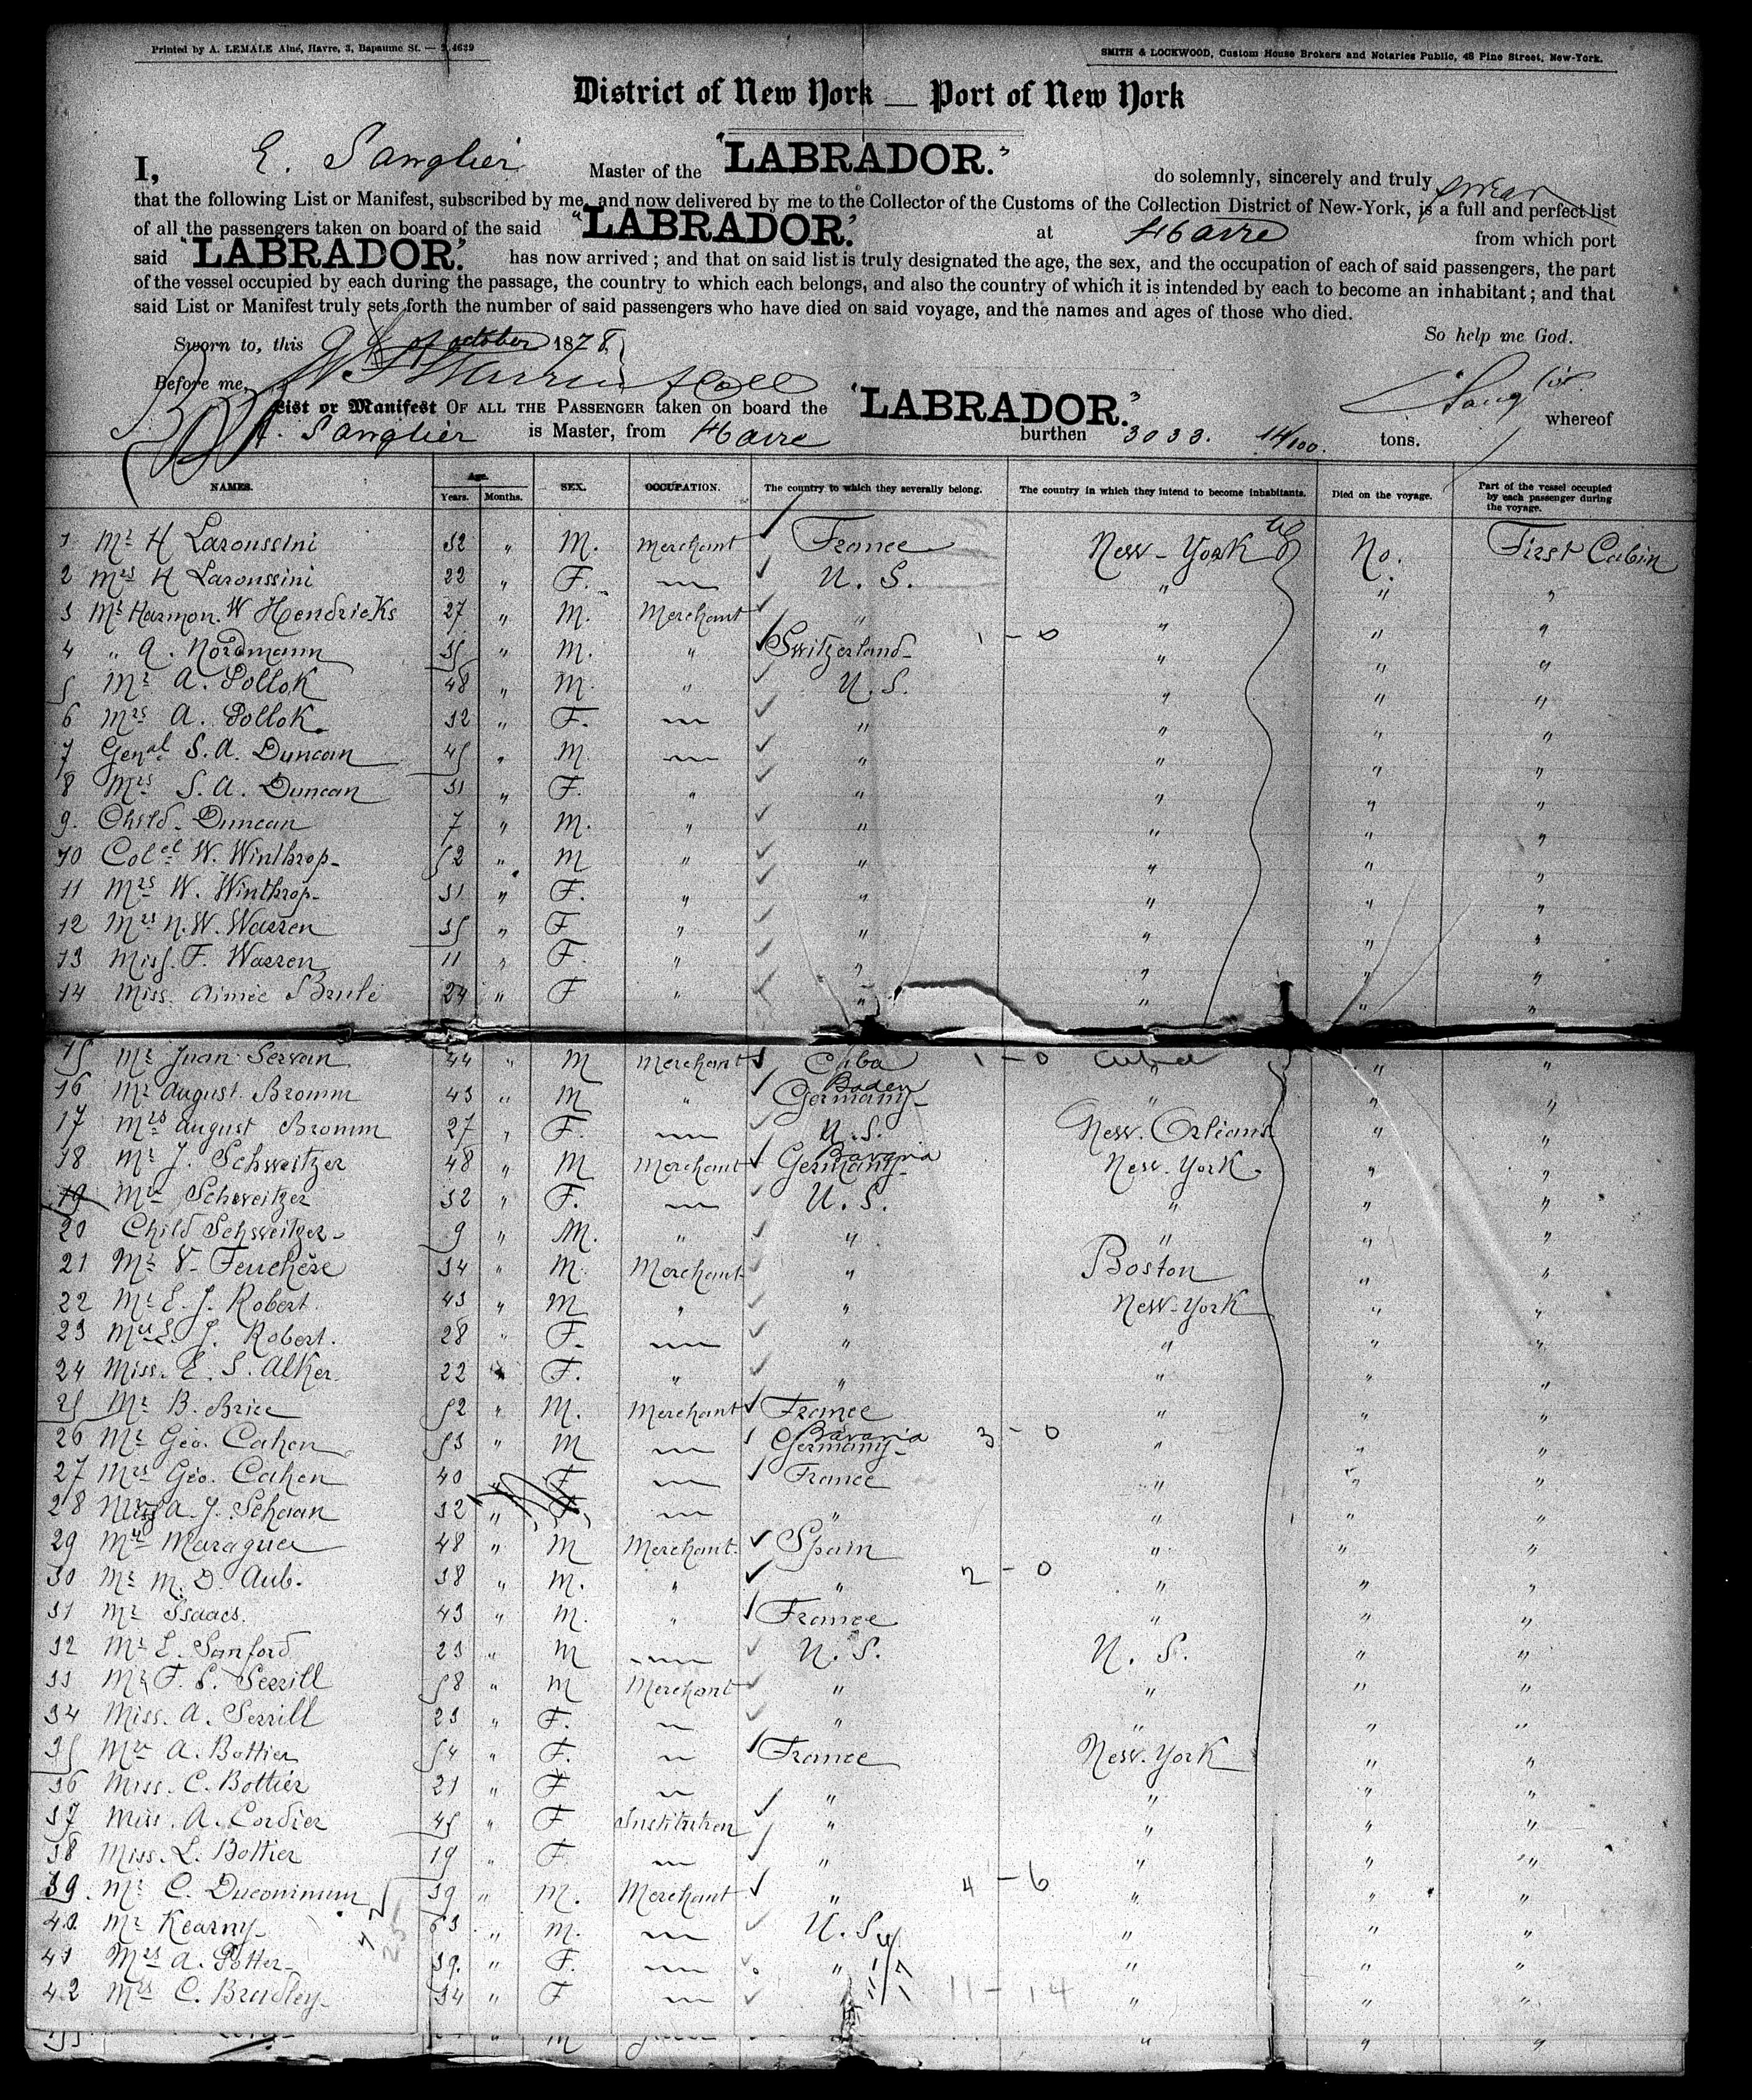 Printed by A. LEMALE Ainé, Havre, 3, Bapaume St. — 4629
SMITH & LOCKWOOD, Custom House Brokers and Notaries Public, 48 Pine Street, New-York.
District of New York — Port of New York
I, E. Sanglier Master of the "LABRADOR." do solemnly, sincerely and truly swear
that the following List or Manifest, subscribed by me, and now delivered by me to the Collector of the Customs of the Collection District of New-York, is a full and perfect list
of all the passengers taken on board of the said "LABRADOR." at Havre from which port
said "LABRADOR." has now arrived; and that on said list is truly designated the age, the sex, and the occupation of each of said passengers, the part
of the vessel occupied by each during the passage, the country to which each belongs, and also the country of which it is intended by each to become an inhabitant; and that
said List or Manifest truly sets forth the number of said passengers who have died on said voyage, and the names and ages of those who died.
So help me God.
Sworn to, this of october 1878
Before me,
Sanglier
List or Manifest OF ALL THE PASSENGER taken on board the "LABRADOR." whereof
Sanglier is Master, from Havre burthen 3033. 14/100. tons.
NAMES. Age. Years. Months. SEX. OCCUPATION. The country to which they severally belong. The country in which they intend to become inhabitants. Died on the voyage. Part of the vessel occupied by each passenger during the voyage.
1 Mr H Laroussini 32 " M. Merchant France New-York No. First Cabin
2 Mrs H Laroussini 22 " F. — U. S. " " "
3 Mr Harmon. W Hendricks 27 " M. Merchant " " " "
4 " A. Nordmann 35 " M. " Switzerland 1 - 0 " " "
5 Mr A. Pollok 48 " M. " U. S. " " "
6 Mrs A. Pollok 32 " F. — " " " "
7 Genal S. A. Duncan 45 " M. — " " " "
8 Mrs S. A. Duncan 31 " F. " " " " "
9. Child. Duncan 7 " M. " " " " "
10 Colel W. Winthrop 52 " M " " " " "
11 Mrs W. Winthrop 31 " F. " " " " "
12 Mrs N. W. Warren 35 " F " " " " "
13 Miss. F. Warren 11 " F. " " " " "
14 Miss. Aimée Brulé 24 " F " " " " "
15 Mr Juan Servan 44 " M Merchant Cuba 1 - 0 Cuba " "
16 Mr August. Bromm 43 " M " Baden Germany " " "
17 Mrs August Bromm 27 " F. — U. S. New. Orleans " "
18 Mr J. Schweitzer 48 " M Merchant Bavaria Germany New-York " "
19 Mrs Schweitzer 32 " F. — U. S. " " "
20 Child Schweitzer 9 " M. " " " " "
21 Mr V. Feuchère 34 " M. Merchant " Boston " "
22 Mr E. J. Robert. 43 " M " " New-York " "
23 Mrs E. J. Robert. 28 " F. — " " " "
24 Miss. E. S. Alker. 22 " F. " " " " "
25 Mr B. Brice 52 " M. Merchant France " " "
26 Mr Geo. Cahen 53 " M — Bavaria Germany 3 - 0 " " "
27 Mrs Geo. Cahen 40 " F — France " " "
28 A. J. Schwan 32 " — " " " "
29 Maraguer 48 " M Merchant. Spain " " "
30 Mr M. D. Aub. 38 " M. " " 2 - 0 " " "
31 Mr Isaacs. 43 " M. " France " " "
32 Mr E. Sanford 23 " M — U. S. U. S. " "
33 Mr F. S. Serrill 58 " M Merchant " " " "
34 Miss. A. Serrill 23 " F. — " " " "
35 A. Bottier 54 " F. — France New. York " "
36 Miss. C. Bottier 21 " F — " " " "
37 Miss. A. Cordier 45 " F Institution " " " "
38 Miss. L. Bottier 19 " F. — " " " "
39. Mr C. Ducommun 39 " M. Merchant " 4 - 6 " " "
40. Mr Kearny 63 " M. — U. S. " " "
41 Mrs A. Potter 39. " F. — " " " "
42 Mrs C. Bradley 34 " F — " 11 - 14 " " "
M " " "